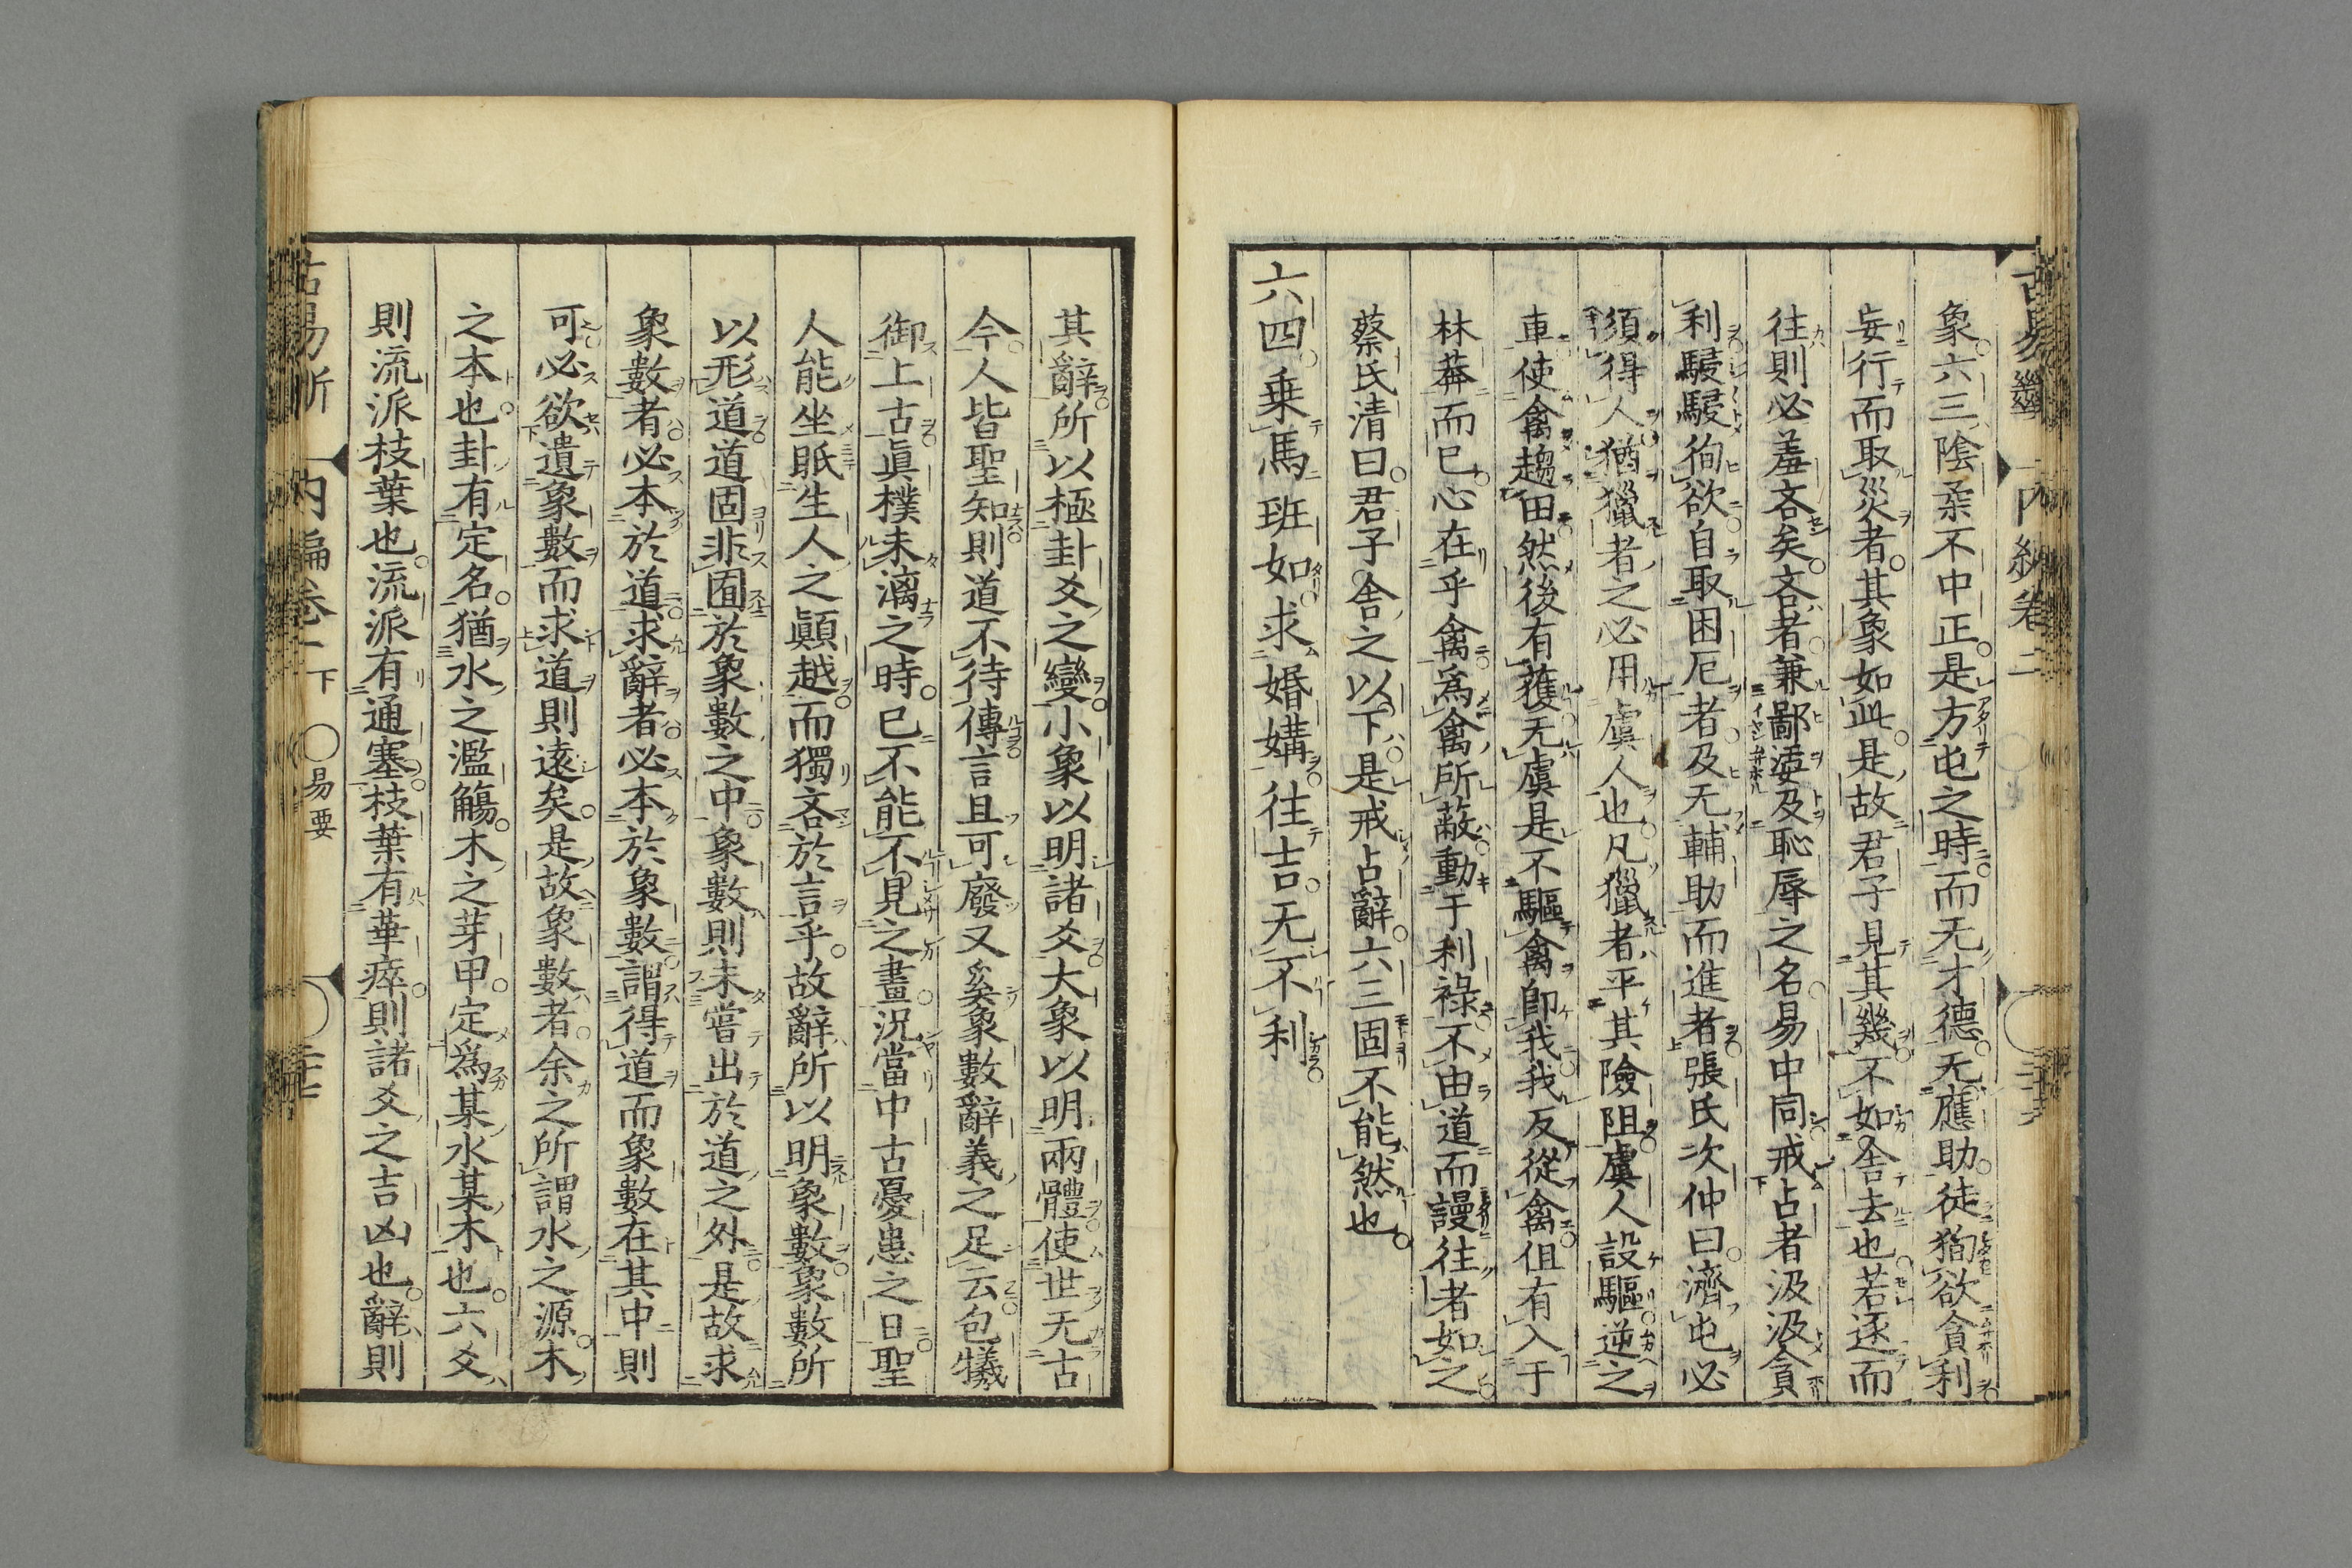 象六三陰柔不中正是方屯之時而无才德无應助徒狥欲貪利
妄行而取災者其象如此是故君子見其幾不如舍去也若逐而
往則必羞吝矣吝者兼鄙婬及恥辱之名易中同戒占者汲汲貪
利駸駸徇欲自取困厄者及无輔助而進者張氏次仲曰濟屯必
須得人猶獵者之必用虞人也凡獵者平其險阻虞人設驅逆之
車使禽趨田然後有獲无虞是不驅禽卽我我反從禽但有入于
林莽而已心在乎禽爲禽所蔽動于利祿不由道而謾往者如之
蔡氏清曰君子舍之以下是戒占辭六三固不能然也
六四乗馬班如求婚媾往吉无不利
其辭所以極卦爻之變小象以明諸爻大象以明兩體使世无古
今人皆聖知則道不待傳言且可廢又奚象數辭義之足云包犧
御上古眞樸未漓之時已不能不見之畫況當中古憂患之日聖
人能坐眂生人之顚越而獨吝於言乎故辭所以明象數象數所
以形道道固非囿於象數之中象數則未嘗出於道之外是故求
象數者必本於道求辭者必本於象數謂得道而象數在其中則
可必欲遺象數而求道則遠矣是故象數者余之所謂水之源木
之本也卦有定名猶水之濫觴木之芽甲定爲某水某木也六爻
則流派枝葉也流派有通塞枝葉有華瘁則諸爻之吉凶也辭則
古易斷 内編卷二下 易要